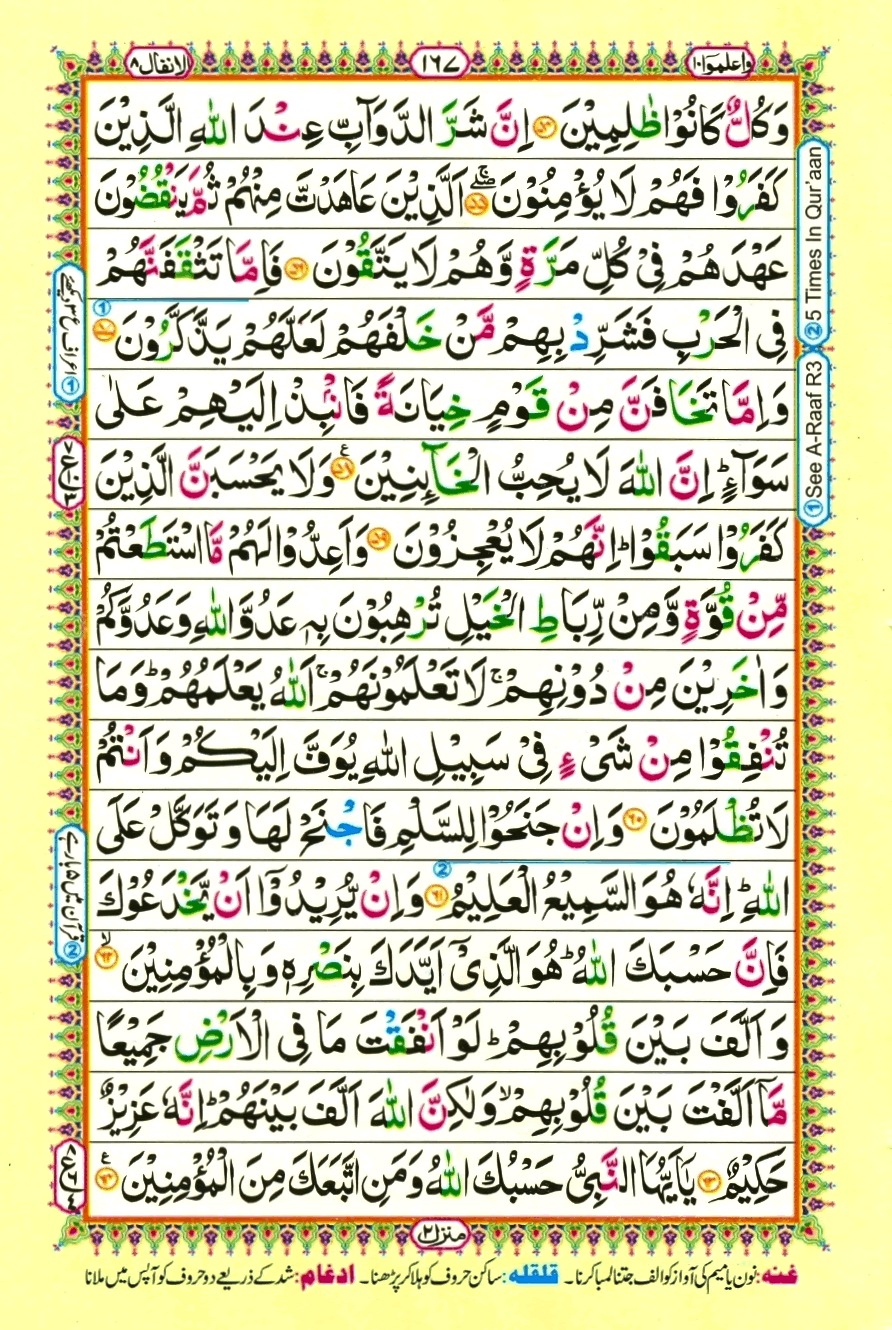 واعلموا ١٠
١٦٧
الانفال ٨
وَكُلٌّ كَانُوْا ظٰلِمِيْنَ ﴿٥٤﴾ اِنَّ شَرَّ الدَّوَآبِّ عِنْدَ اللّٰهِ الَّذِيْنَ
كَفَرُوْا فَهُمْ لَا يُؤْمِنُوْنَ ﴿٥٥﴾ۖۚ اَلَّذِيْنَ عَاهَدْتَّ مِنْهُمْ ثُمَّ يَنْقُضُوْنَ
عَهْدَهُمْ فِىْ كُلِّ مَرَّةٍ وَّهُمْ لَا يَتَّقُوْنَ ﴿٥٦﴾ فَاِمَّا تَثْقَفَنَّهُمْ
فِى الْحَرْبِ فَشَرِّدْ بِهِمْ مَّنْ خَلْفَهُمْ لَعَلَّهُمْ يَذَّكَّرُوْنَ ﴿٥٧﴾
وَاِمَّا تَخَافَنَّ مِنْ قَوْمٍ خِيَانَةً فَانْۢبِذْ اِلَيْهِمْ عَلٰى
سَوَآءٍ ؕ اِنَّ اللّٰهَ لَا يُحِبُّ الْخَآئِنِيْنَ ﴿٥٨﴾ وَلَا يَحْسَبَنَّ الَّذِيْنَ
كَفَرُوْا سَبَقُوْا ؕ اِنَّهُمْ لَا يُعْجِزُوْنَ ﴿٥٩﴾ وَاَعِدُّوْا لَهُمْ مَّا اسْتَطَعْتُمْ
مِّنْ قُوَّةٍ وَّمِنْ رِّبَاطِ الْخَيْلِ تُرْهِبُوْنَ بِهٖ عَدُوَّ اللّٰهِ وَعَدُوَّكُمْ
وَاٰخَرِيْنَ مِنْ دُوْنِهِمْ ۚ لَا تَعْلَمُوْنَهُمْ ۚ اَللّٰهُ يَعْلَمُهُمْ ؕ وَمَا
تُنْفِقُوْا مِنْ شَىْءٍ فِىْ سَبِيْلِ اللّٰهِ يُوَفَّ اِلَيْكُمْ وَاَنْتُمْ
لَا تُظْلَمُوْنَ ﴿٦٠﴾ وَاِنْ جَنَحُوْا لِلسَّلْمِ فَاجْنَحْ لَهَا وَتَوَكَّلْ عَلَى
اللّٰهِ ؕ اِنَّهٗ هُوَ السَّمِيْعُ الْعَلِيْمُ ﴿٦١﴾ وَاِنْ يُّرِيْدُوْۤا اَنْ يَّخْدَعُوْكَ
فَاِنَّ حَسْبَكَ اللّٰهُ ؕ هُوَ الَّذِىْۤ اَيَّدَكَ بِنَصْرِهٖ وَبِالْمُؤْمِنِيْنَ ﴿٦٢﴾ۙ
وَاَلَّفَ بَيْنَ قُلُوْبِهِمْ ؕ لَوْ اَنْفَقْتَ مَا فِى الْاَرْضِ جَمِيْعًا
مَّاۤ اَلَّفْتَ بَيْنَ قُلُوْبِهِمْ ۙ وَلٰكِنَّ اللّٰهَ اَلَّفَ بَيْنَهُمْ ؕ اِنَّهٗ عَزِيْزٌ
حَكِيْمٌ ﴿٦٣﴾ يٰۤاَيُّهَا النَّبِىُّ حَسْبُكَ اللّٰهُ وَمَنِ اتَّبَعَكَ مِنَ الْمُؤْمِنِيْنَ ﴿٦٤﴾
② 5 Times In Qur'aan
① See A-Raaf R3
① اعراف ع ۳ دیکھئے
② قرآن میں ۵ بار ہے
منزل ٢
غنه: نون یا میم کی آواز کو الف جتنا لمبا کرنا۔ قلقله: ساکن حروف کو ہلا کر پڑھنا۔ ادغام: شد کے ذریعے دو حروف کو آپس میں ملانا